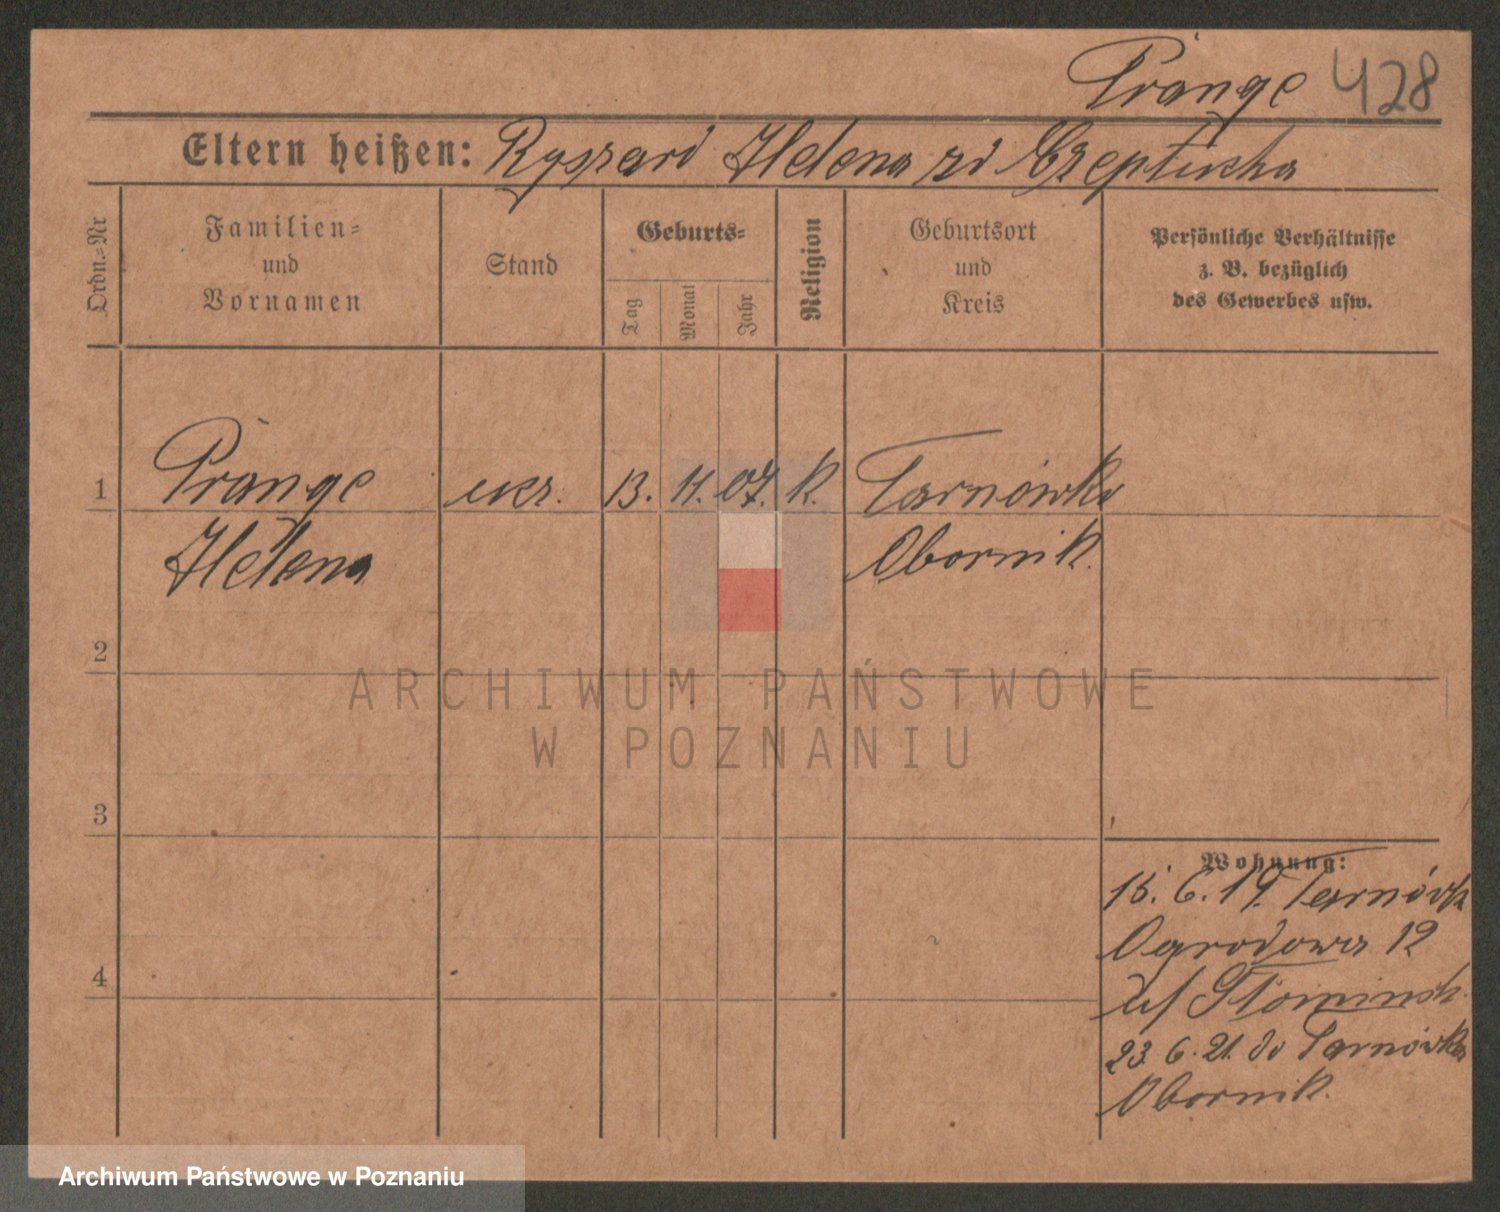 Prange 428
Eltern heißen: Ryszard Helena zd Czeptucha
Ordn.-Nr
Familien-
und
Vornamen
Stand
Geburts-
Tag
Monat
Jahr
Religion
Geburtsort
und
Kreis
Persönliche Verhältnisse
z. B. bezüglich
des Gewerbes usw.
1 Prange ucz. 13. 11. 07. k. Tarnówko
Helena Obornik.
2
3
4
Wohnung:
15. 6. 19. Tarnówk
Ogrodowa 12
u/ Słominsk.
23. 6. 21. do Tarnówka
Obornik.
ARCHIWUM PAŃSTWOWE
W POZNANIU
Archiwum Państwowe w Poznaniu